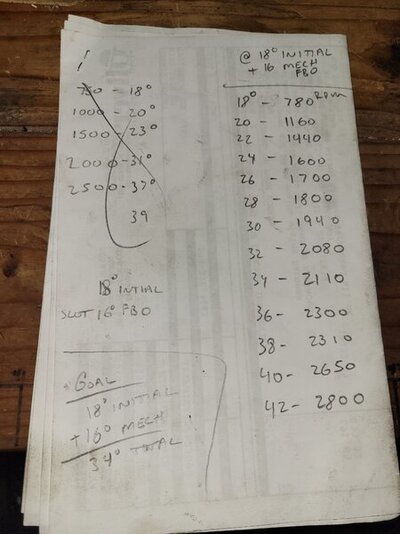 750 - 18°
1000 - 20°
1500 - 23°
2000 - 31°
2500 - 37°
39
18° INTIAL
SLOT 16° FBO
GOAL
18° INITIAL
+ 16° MECH
34° TOTAL
@ 18° INITIAL
+ 16 MECH
FBO
18° - 780 RPM
20 - 1160
22 - 1440
24 - 1600
26 - 1700
28 - 1800
30 - 1940
32 - 2080
34 - 2110
36 - 2300
38 - 2310
40 - 2650
42 - 2800